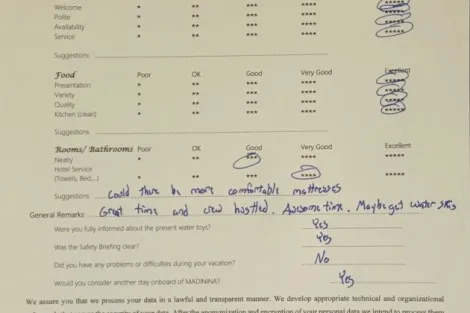 Welcome * ** *** **** *****
Polite * ** *** **** *****
Availability * ** *** **** *****
Service * ** *** **** *****
Suggestions
Food Poor OK Good Very Good Excellent
Presentation * ** *** **** *****
Variety * ** *** **** *****
Quality * ** *** **** *****
Kitchen (clean) * ** *** **** *****
Suggestions
Rooms/ Bathrooms Poor OK Good Very Good Excellent
Neatly * ** *** **** *****
Hotel Service
(Towels, Bed,...) * ** *** **** *****
Suggestions Could there be more comfortable mattresses
General Remarks Great time and crew hustled. Awesome time. Maybe get water skis
Were you fully informed about the present water toys? Yes
Was the Safety Briefing clear? Yes
Did you have any problems or difficulties during your vacation? No
Would you consider another stay onboard of MADININA? Yes
We assure you that we process your data in a lawful and transparent manner. We develop appropriate technical and organizational